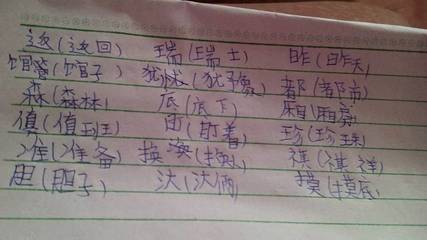 返(返回) 瑞(瑞士) 昨(昨天)
馆(馆子) 犹(犹豫) 都(都市)
森(森林) 底(底下) 厢(厢房)
值(值班) (盯着) 珍(珍珠)
准(准备) 换 祺(祺祥)
胆(胆子) 摸(摸底)